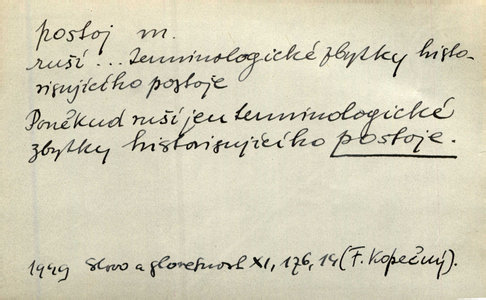 postoj m.
ruší ... terminologické zbytky histo-
risujícího postoje
Poněkud ruší jen terminologické
zbytky historisujícího postoje.
1949 Slovo a slovesnost XI, 176, 19 (F. Kopečný).